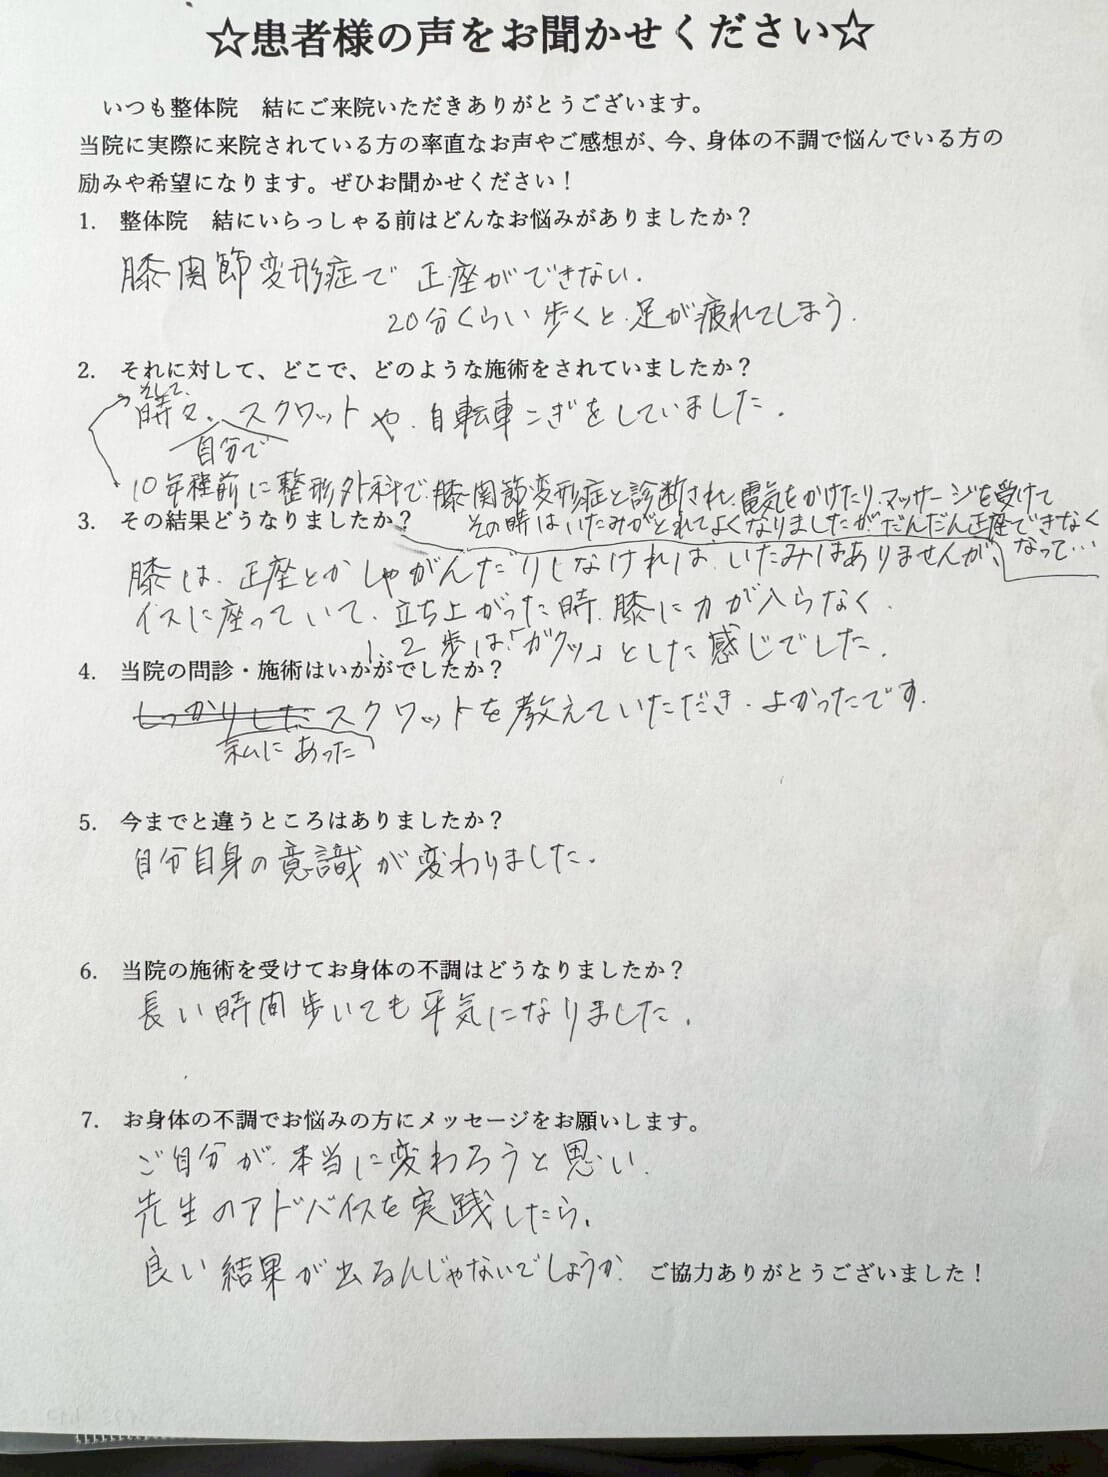 ☆患者様の声をお聞かせください☆
いつも整体院　結にご来院いただきありがとうございます。
当院に実際に来院されている方の率直なお声やご感想が、今、身体の不調で悩んでいる方の
励みや希望になります。ぜひお聞かせください！
1.　整体院　結にいらっしゃる前はどんなお悩みがありましたか？
膝関節変形症で正座ができない.
20分くらい歩くと、足が疲れてしまう.
2.　それに対して、どこで、どのような施術をされていましたか？
そして、
時々、スクワットや、自転車こぎをしていました.
自分で
10年程前に整形外科で、膝関節変形症と診断され、電気をかけたり、マッサージを受けて
その時はいたみがとれてよくなりましたが、だんだん正座できなく
なって…
3.　その結果どうなりましたか？
膝は、正座とかしゃがんだりしなければ、いたみはありませんが、
イスに座っていて、立ち上がった時、膝に力が入らなく、
1、2歩は「ガクッ」とした感じでした.
4.　当院の問診・施術はいかがでしたか？
しっかりした スクワットを教えていただき、よかったです.
私にあった
5.　今までと違うところはありましたか？
自分自身の意識が変わりました.
6.　当院の施術を受けてお身体の不調はどうなりましたか？
長い時間歩いても平気になりました.
7.　お身体の不調でお悩みの方にメッセージをお願いします。
ご自分が、本当に変わろうと思い、
先生のアドバイスを実践したら、
良い結果が出るんじゃないでしょうか.
ご協力ありがとうございました！